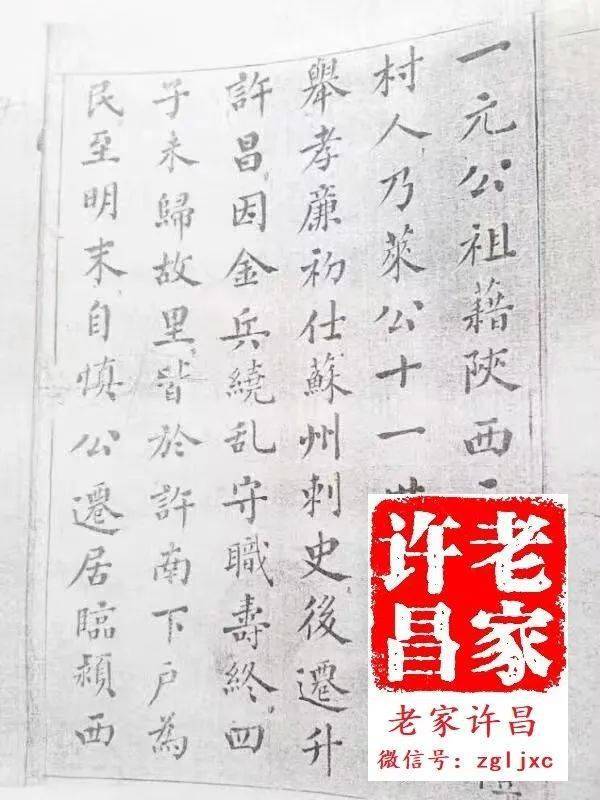 一元公祖籍陝西
村人乃萊公十一
舉孝廉初仕蘇州刺史後遷升
許昌因金兵繞乱守職壽終四
子未歸故里皆於許南下户為
民至明末自慎公遷居臨潁西
老家
许昌
老家许昌
微信号：zgljxc